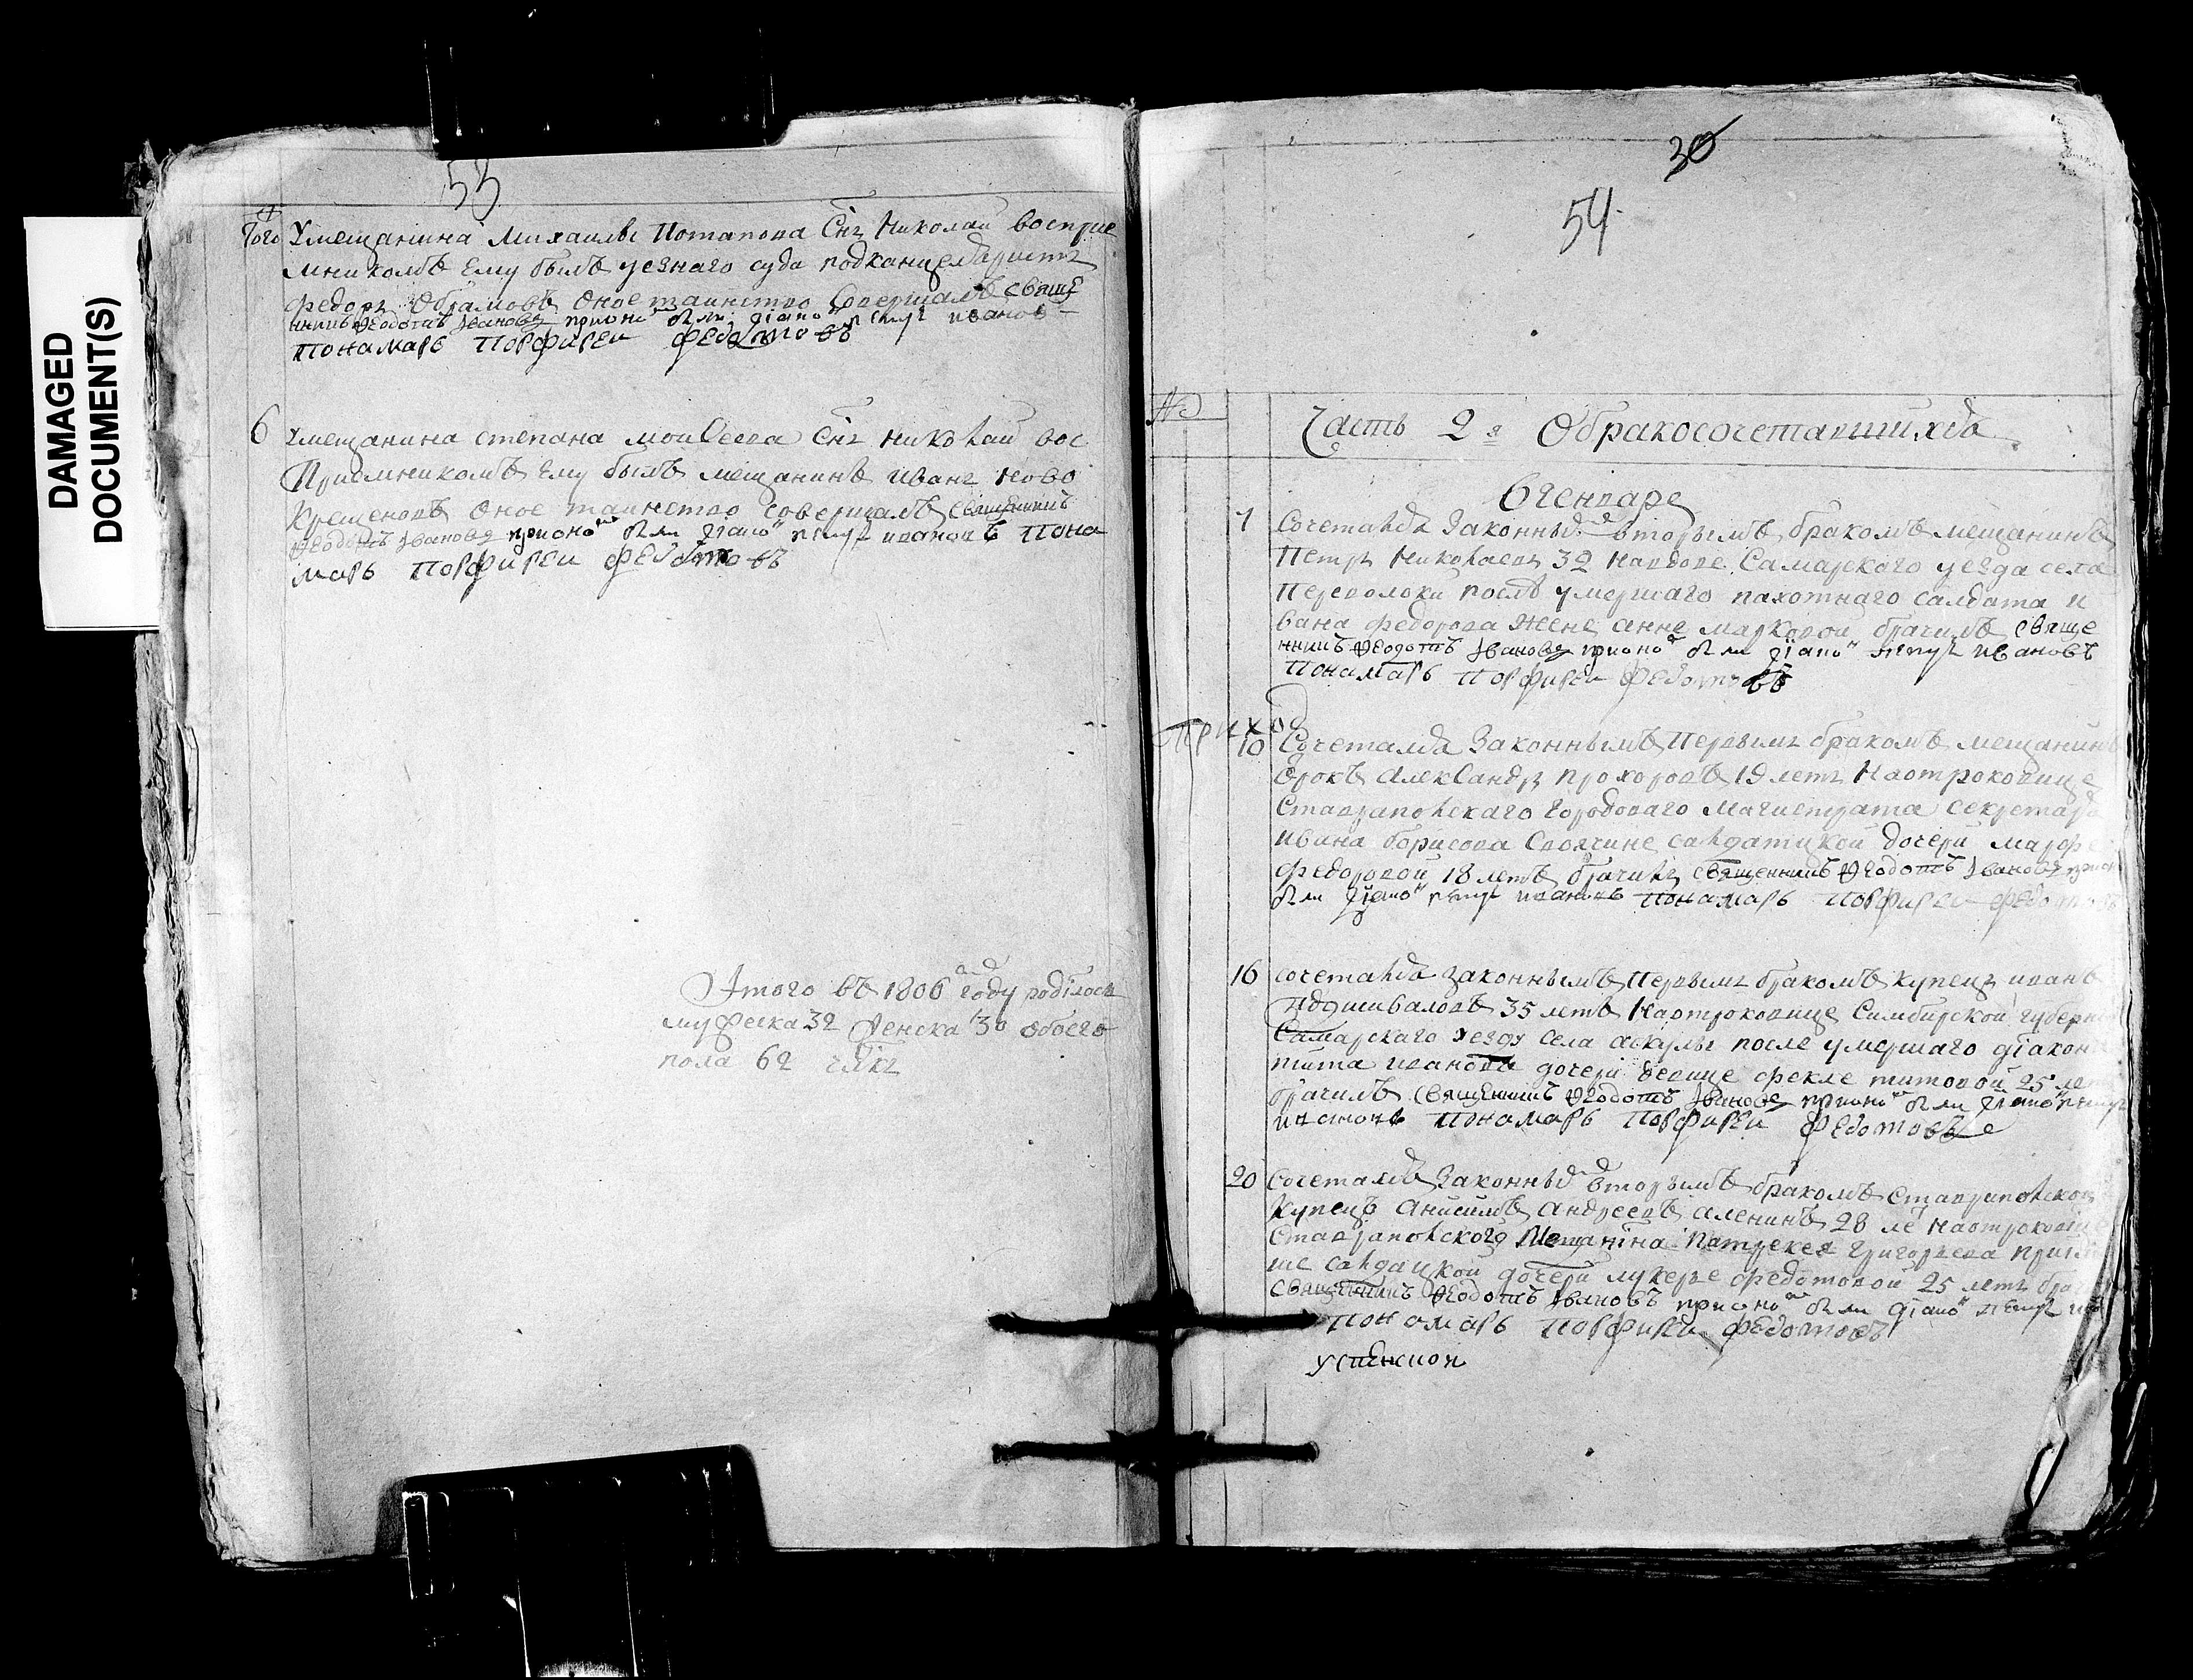 DAMAGED
DOCUMENT(S)
53
того Умещанина Михаилы Потапова Снъ Николаи восприе
мникомъ Ему былъ уезнаго суда подканцеляристъ
федоръ Обрамовъ Оное таинство Совершалъ свяще
нникъ Ѳеодотъ Ивановъ были петръ иванов
Понамарь Порфиреи Федотовъ
6 Умещанина степана моисеева Снъ николаи вос
Приемникомъ Ему былъ мещанинъ иванъ ново
крещеновъ Оное таинство совершалъ священникъ
Ѳеодотъ Ивановъ были петръ ивановъ Пона
марь Порфиреи Федотовъ
Итого въ 1806 году родилось
мужеска 32 женска 30 обоего
пола 62
30
54
№
Часть 2я Обракосочетавшихся
Вгенваре
7 Сочетался Законным вторымъ бракомъ мещанинъ
Петръ Николаевъ 32 Навдове Самарскаго уезда села
Переволоки послѣ умершаго пахотнаго салдата и
вана федорова жене анне марковои брачилъ свяще
нникъ Ѳеодотъ Ивановъ были петръ ивановъ
Понамарь Порфиреи Федотовъ
Приход
10 Сочетался Законнымъ Первымъ бракомъ мещанинъ
Александръ прохоровъ 19 летъ Наотроковице
Ставрапольскаго городоваго магистрата секретаря
ивана борисова салдатцкой дочери марфе
федоровой 18 летъ брачилъ священникъ Ѳеодотъ Ивановъ
были петръ ивановъ Понамарь Порфиреи федотовъ
16 сочетался законнымъ Первымъ бракомъ купецъ иванъ
35 летъ Наотроковице Симбирской губерни
Самарскаго уезду села аскулы после умершаго диакона
тита иванова дочери девице фекле титовой 25 лет
брачилъ священникъ Ѳеодотъ Ивановъ были петръ
ивановъ Понамарь Порфиреи Федотовъ
20 Сочетался Законным вторымъ бракомъ Ставрапольской
Купецъ Анисимъ андреевъ аленинъ 28 ле Наотроковице
Ставрапольского Мещанина Патрекея григорьева
салдацкой дочери лукерье федотовой 25 летъ
священникъ Ѳеодотъ Ивановъ были петръ
Понамарь Порфиреи Федотовъ